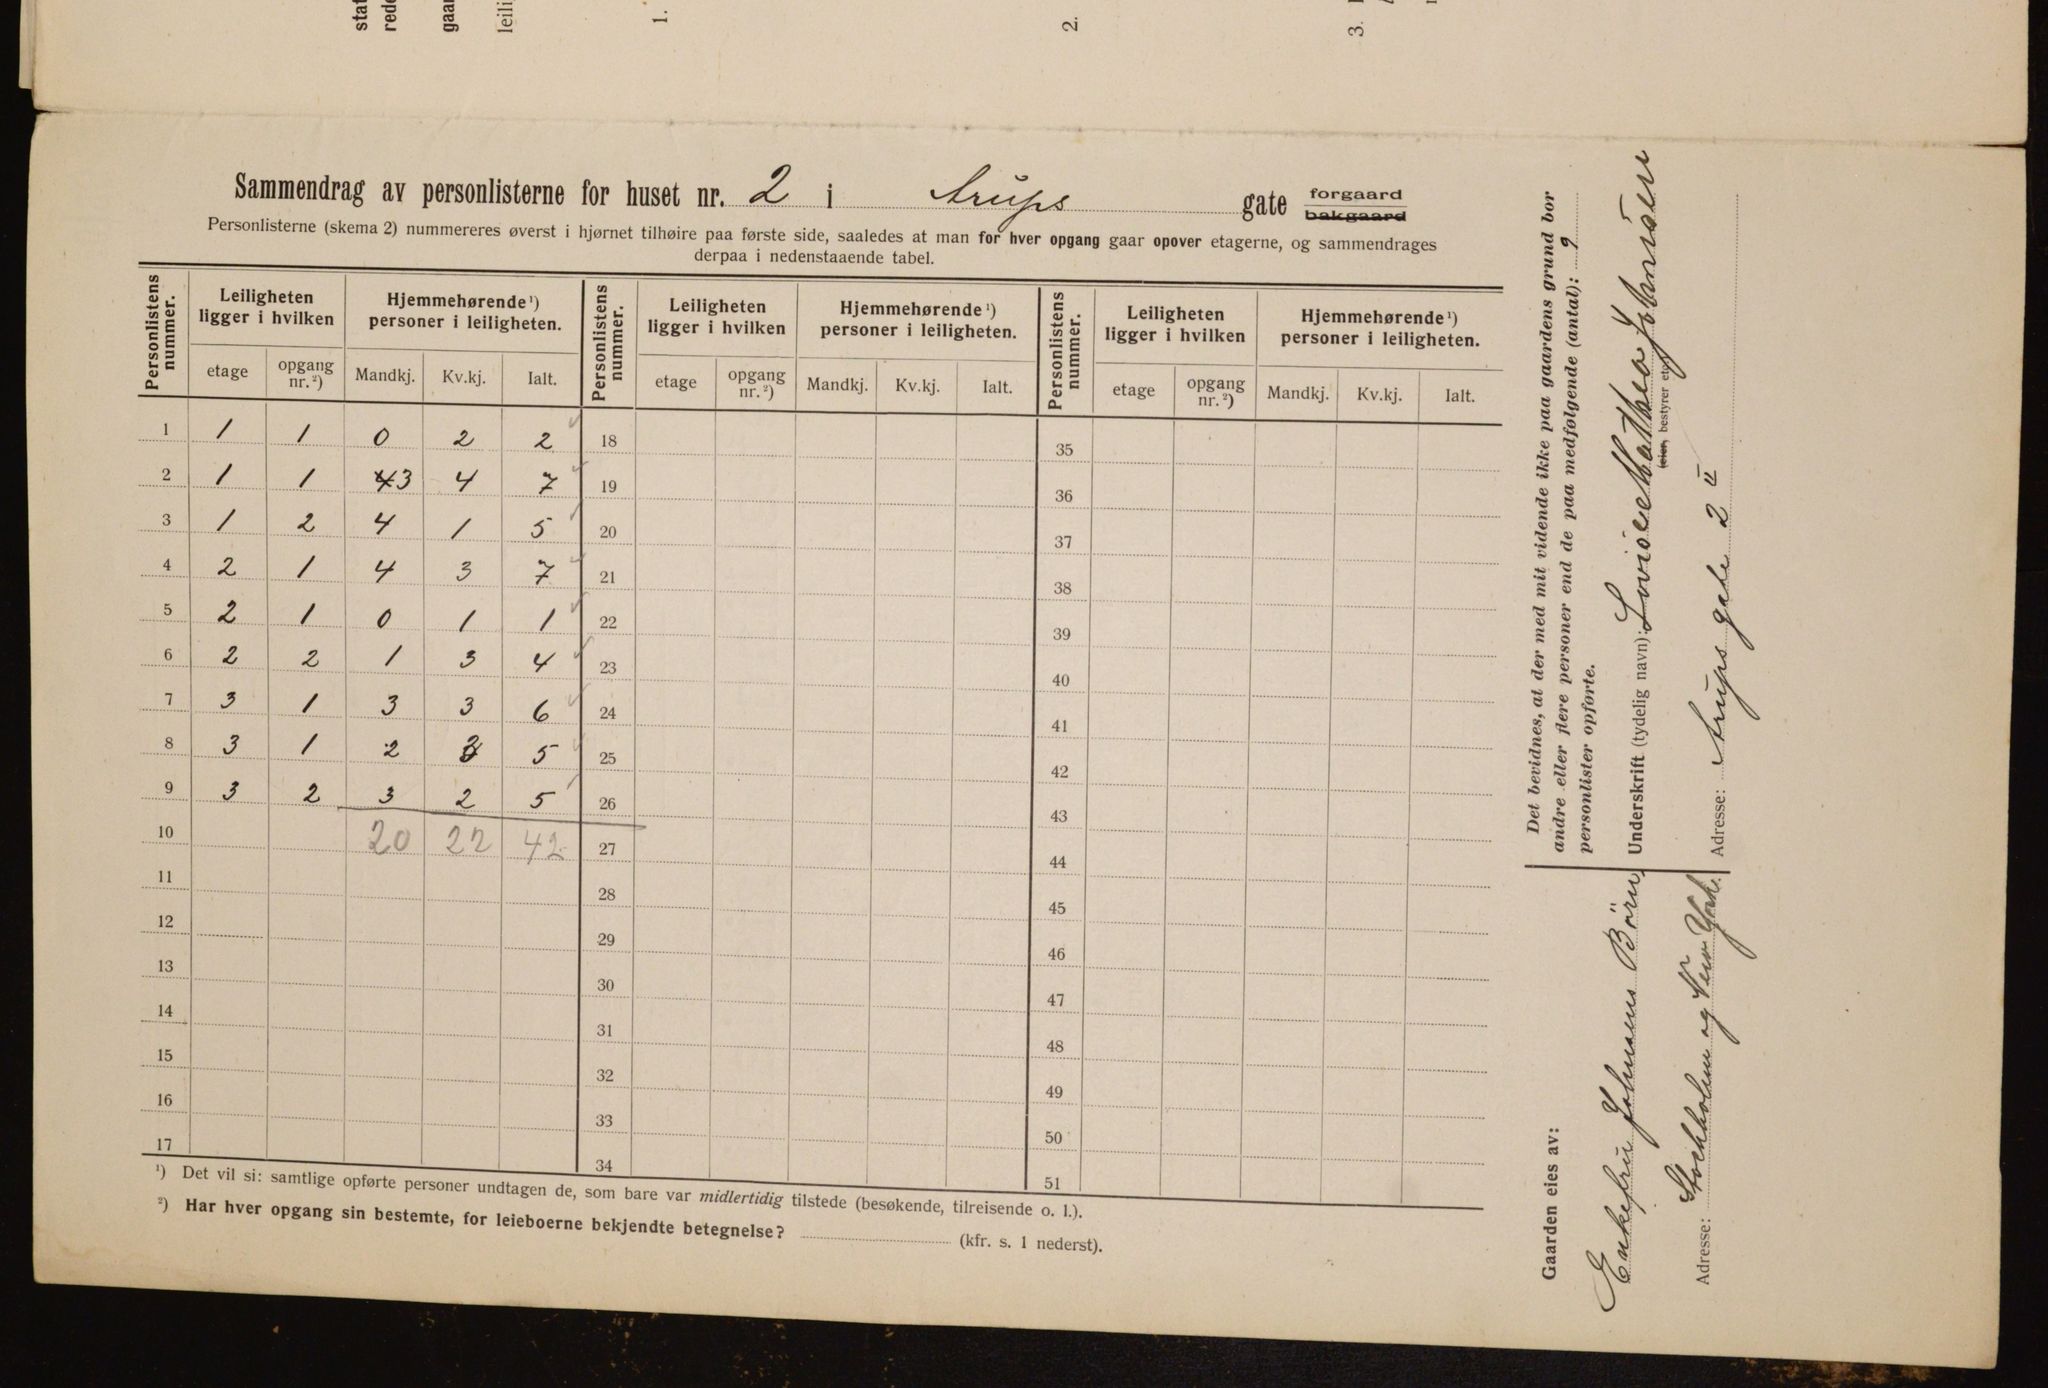 Sammendrag av personlisterne for huset nr. 2 i Arups gate forgaard
bakgaard
Personlisterne (skema 2) nummereres øverst i hjørnet tilhøire paa første side, saaledes at man for hver opgang gaar opover etagerne, og sammendrages
derpaa i nedenstaaende tabel.
Personlistens nummer. Leiligheten ligger i hvilken Hjemmehørende¹) personer i leiligheten. Personlistens nummer. Leiligheten ligger i hvilken Hjemmehørende¹) personer i leiligheten. Personlistens nummer. Leiligheten ligger i hvilken Hjemmehørende¹) personer i leiligheten.
etage opgang nr.²) Mandkj. Kv.kj. Ialt. etage opgang nr.²) Mandkj. Kv.kj. Ialt. etage opgang nr.²) Mandkj. Kv.kj. Ialt.
1 1 1 0 2 2 18 35
2 1 1 43 4 7 19 36
3 1 2 4 1 5 20 37
4 2 1 4 3 7 21 38
5 2 1 0 1 1 22 39
6 2 2 1 3 4 23 40
7 3 1 3 3 6 24 41
8 3 1 2 3 5 25 42
9 3 2 3 2 5 26 43
10 20 22 42 27 44
11 28 45
12 29 46
13 30 47
14 31 48
15 32 49
16 33 50
17 34 51
¹) Det vil si: samtlige opførte personer undtagen de, som bare var midlertidig tilstede (besøkende, tilreisende o. l.).
²) Har hver opgang sin bestemte, for leieboerne bekjendte betegnelse? (kfr. s. 1 nederst).
Det bevidnes, at der med mit vidende ikke paa gaardens grund bor
andre eller flere personer end de paa medfølgende (antal): 9
personlister opførte.
Underskrift (tydelig navn): Lovise Mathea Johnsen
(eier, bestyrer etc.)
Adresse: Arups gate 2 II
Gaarden eies av:
Enkefru Johnsens Börn
Adresse: Stockholm og New York.
1.
2.
3.